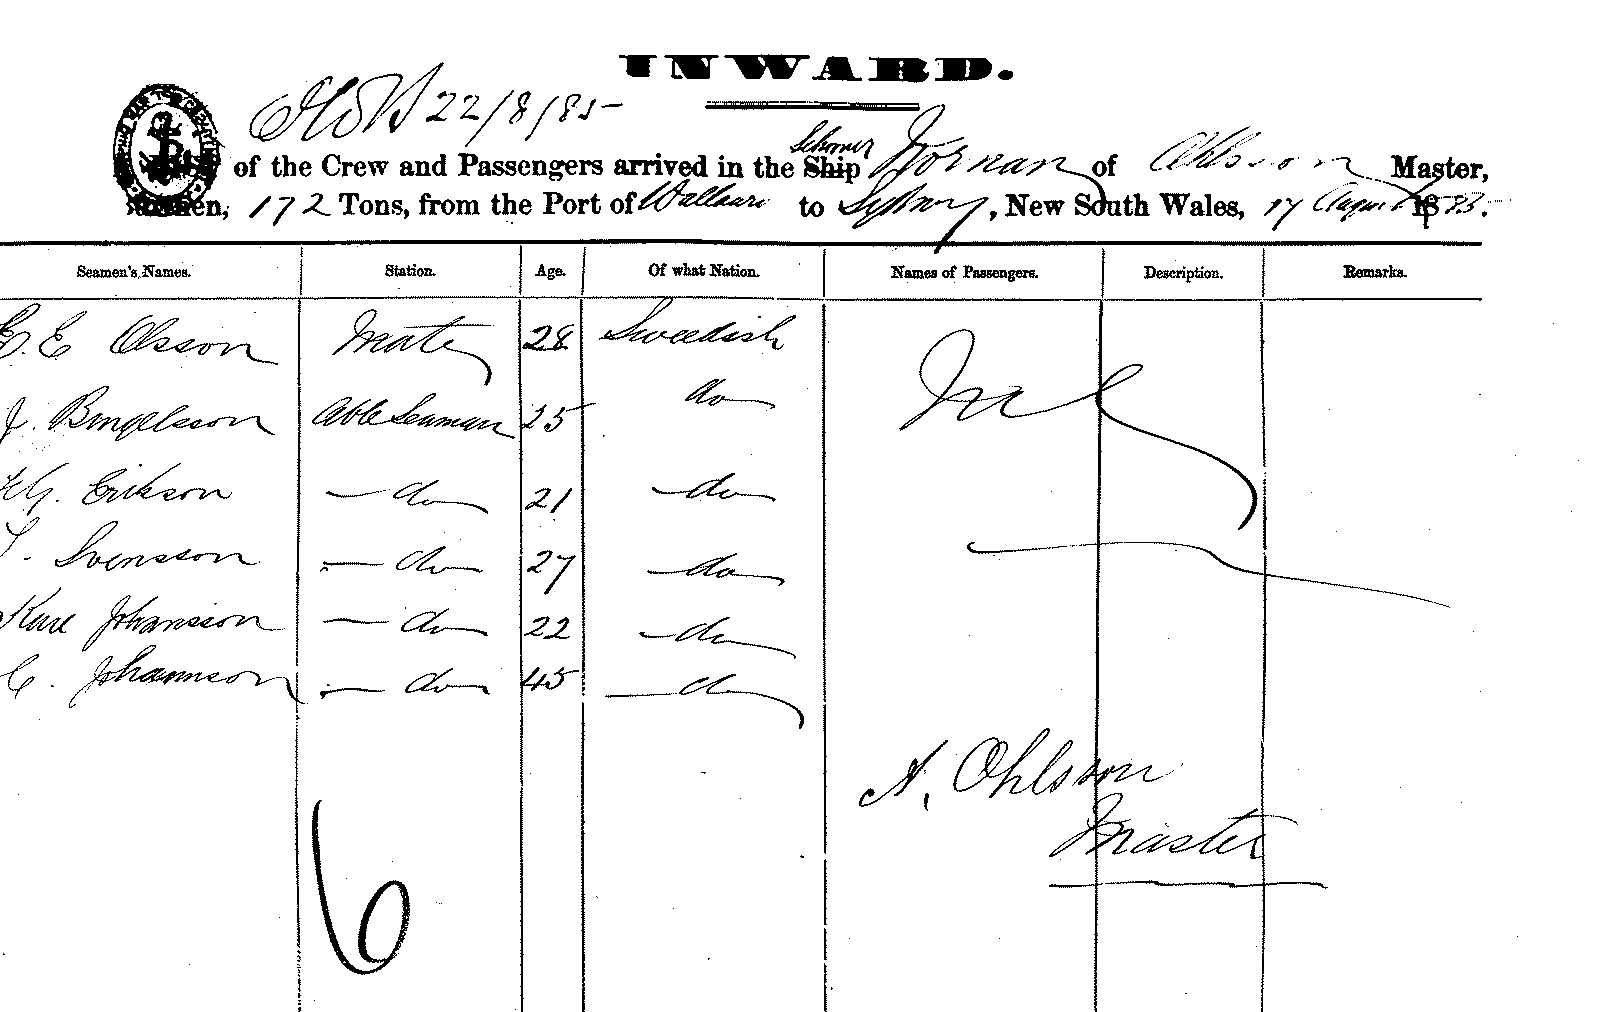 INWARD.
22/8/85
Schooner
of the Crew and Passengers arrived in the Ship Nornan of Ohlsson Master,
172 Tons, from the Port of Wallaroo to Sydney, New South Wales, 17 August 1885.
Seamen's Names. Station. Age. Of what Nation. Names of Passengers. Description. Remarks.
E. Olsson Mate 28 Swedish
J. Bengelsson Able Seaman 25 do
G. Erikson do 21 do
Svensson do 27 do
Karl Johansson do 22 do
C. Johannson do 45 do
A. Ohlsson
Master
6